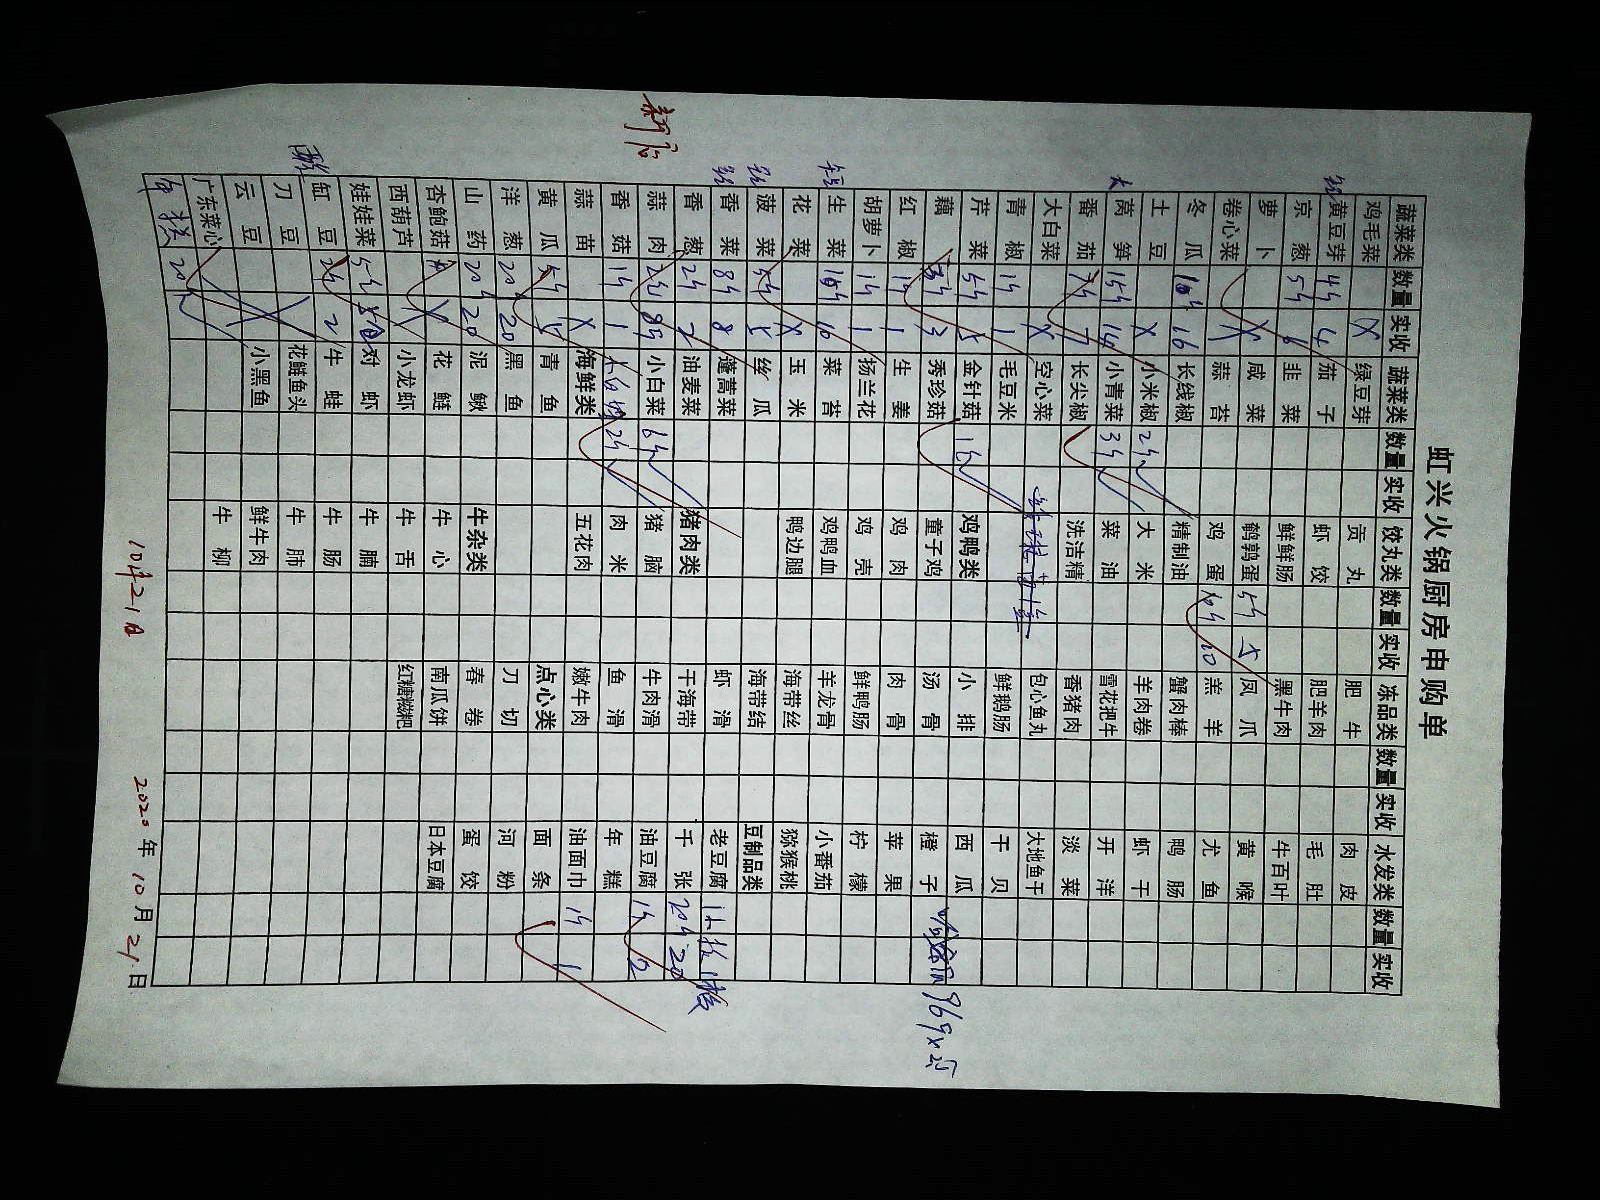 虹兴火锅厨房申购单
蔬菜类 数量 实收 蔬菜类 数量 实收 饺丸类 数量 实收 冻品类 数量 实收 水发类 数量 实收
鸡毛菜 X 绿豆芽 贡丸 肥牛 肉皮
黄豆芽 4斤 4 茄子 虾饺 肥羊肉 毛肚
京葱 5斤 韭菜 鲜鲜肠 黑牛肉 牛百叶
萝卜 咸菜 鹌鹑蛋 5斤 5 凤爪 黄喉
卷心菜 X 蒜苔 鸡蛋 20 羔羊 尤鱼
冬瓜 16 长线椒 精制油 蟹肉棒 鸭肠
土豆 X 小米椒 2斤 大米 羊肉卷 虾干
莴笋 15斤 小青菜 3斤 菜油 雪花把牛 开洋
番茄 7斤 7 长尖椒 洗洁精 香猪肉 淡菜
大白菜 X 空心菜 包心鱼丸 大地鱼干
青椒 1斤 1 毛豆米 鲜鹅肠 干贝
芹菜 5斤 5 金针菇 1包 鸡鸭类 小排 西瓜
藕 3斤 3 秀珍菇 童子鸡 汤骨 橙子
红椒 1斤 1 生姜 鸡肉 肉骨 苹果
胡萝卜 1斤 1 扬兰花 鸡壳 鲜鸭肠 柠檬
生菜 菜苔 鸡鸭血 羊龙骨 小番茄
花菜 X 玉米 鸭边腿 海带丝 猕猴桃
菠菜 5斤 5 丝瓜 海带结 豆制品类
香菜 8斤 8 蓬蒿菜 虾滑 老豆腐 1板 1板
香葱 2斤 2 油麦菜 猪肉类 干海带 千张 20斤 20
蒜肉 小白菜 6斤 猪脑 牛肉滑 油豆腐 2
香菇 1斤 1 2斤 肉米 鱼滑 年糕
蒜苗 X 海鲜类 五花肉 嫩牛肉 油面巾 1斤 1
黄瓜 5斤 5 青鱼 点心类 面条
洋葱 20斤 20 黑鱼 刀切 河粉
山药 20斤 20 泥鳅 牛杂类 春卷 蛋饺
杏鲍菇 X 花鲢 牛心 南瓜饼 日本豆腐
西葫芦 小龙虾 牛舌 红糖糍粑
娃娃菜 对虾 牛腩
缸豆 2斤 2 牛蛙 牛肠
刀豆 花鲢鱼头 牛肺
云豆 X 小黑鱼 鲜牛肉
广东菜心 牛柳
20斤
新店
10月21日
2020年10月21日